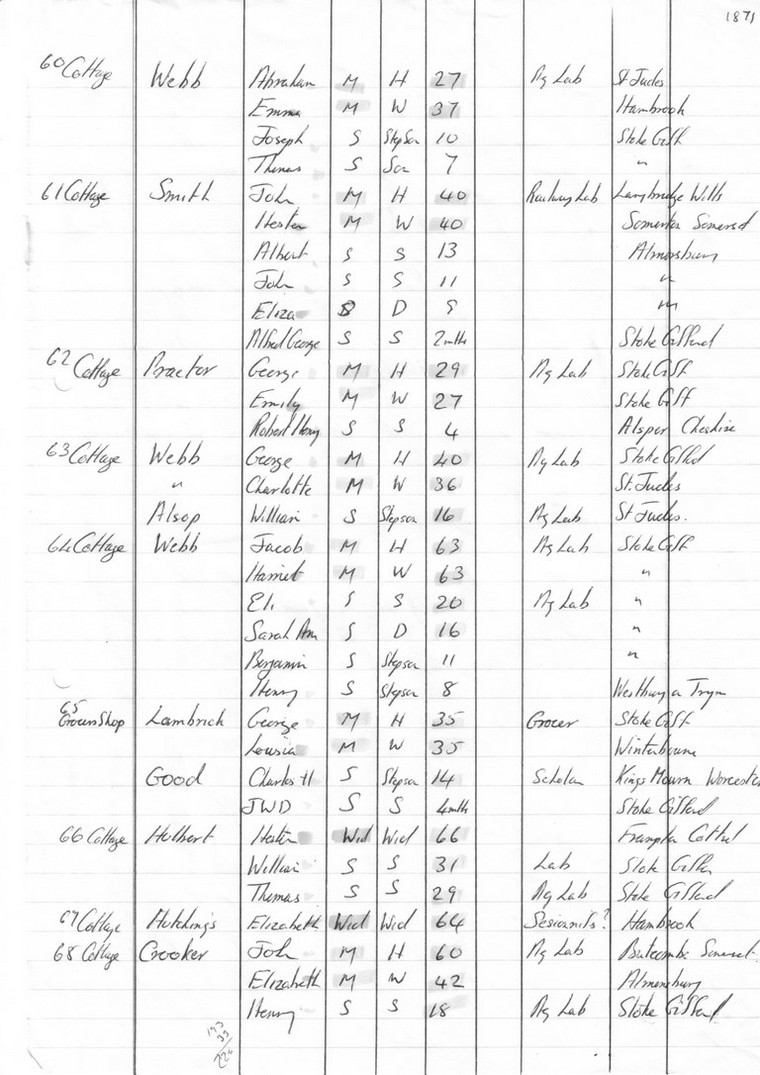 1871
60 Cottage Webb Abraham M H 27 Ag Lab St Judes
Emma M W 37 Hambrook
Joseph S StepSon 10 Stoke Giff
Thomas S Son 7 "
61 Cottage Smith John M H 40 Railway Lab Wills
Hester M W 40 Somerton Somerset
Albert S S 13 Almonsbury
John S S 11 "
Eliza S D 9 "
Alfred George S S 2 mths Stoke Gifford
62 Cottage Proctor George M H 29 Ag Lab Stoke Giff
Emily M W 27 Stoke Giff
Robert Henry S S 4 Cheshire
63 Cottage Webb George M H 40 Ag Lab Stoke Gifford
" Charlotte M W 36 St. Judes
Alsop William S Stepson 16 Ag Lab St Judes.
64 Cottage Webb Jacob M H 63 Ag Lab Stoke Giff
Harriet M W 63 "
Eli S S 20 Ag Lab "
Sarah Ann S D 16 "
Benjamin S Stepson 11 "
Henry S Stepson 8 Westbury on Trym
65
Grocers Shop Lambrick George M H 35 Grocer Stoke Giff
Lousia M W 35 Winterbourne
Good Charles H S Stepson 14 Scholar Kings Worcester
JWD S S 4 mth Stoke Gifford
66 Cottage Holbert Hester Wid Wid 66 Frampton Cottrel
William S S 31 Lab Stoke Gifford
Thomas S S 29 Ag Lab Stoke Gifford
67 Cottage Hutchings Elizabeth Wid Wid 64 Hambrook
68 Cottage Crooker John M H 60 Ag Lab Butcombe Somerset
Elizabeth M W 42 Almonsbury
Henry S S 18 Ag Lab Stoke Gifford
193
33
226